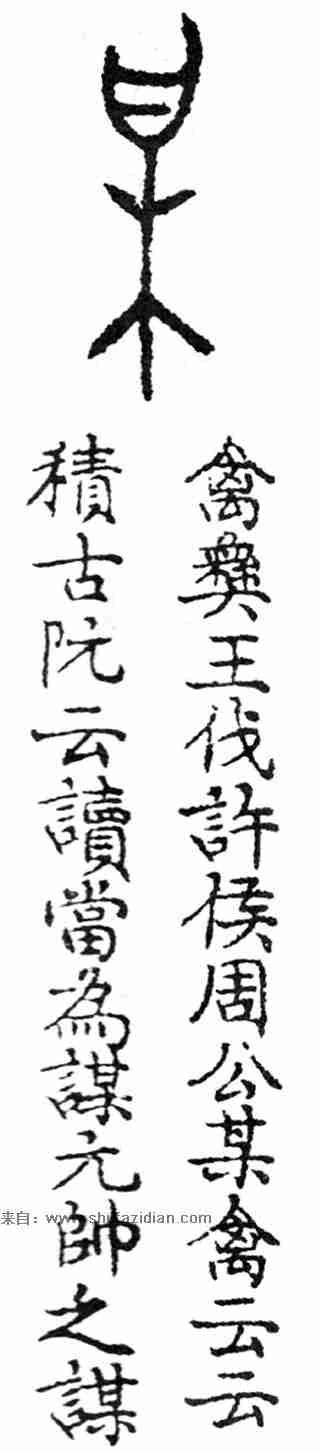 某
禽彝王伐許侯周公某禽云云
積古阮云讀當為謀元帥之謀
来自：www.shufazidian.com